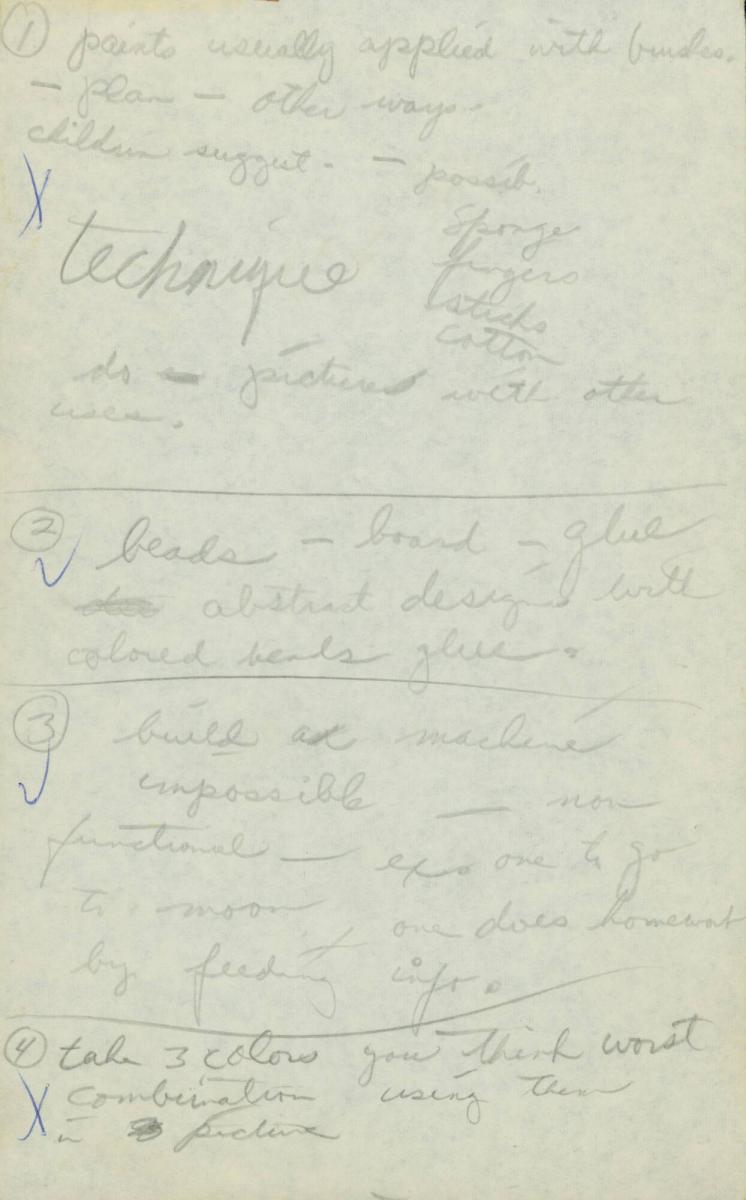 ① paints usually applied with brushes.
— plan — other ways.
children suggest. — possib.
X
sponge
technique
fingers
sticks
cotton
do pictures with other
uses.
② beads — board — glue
✓
abstract designs with
colored beads glue.
③ build a machine
✓
impossible — non
functional — ex. one to go
to moon, one does homework
by feeding info.
④ take 3 colors you think worst
X combination using them
in picture